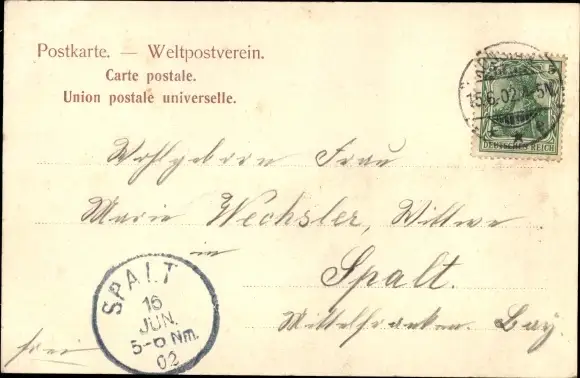 Postkarte. — Weltpostverein.
Carte postale.
Union postale universelle.
15.6.02.4-5N.
DEUTSCHES REICH
Wohlgeborn Frau
Marie Wechsler, Wittwe
in
Spalt.
Mittelfranken. Bay.
frei
SPALT
16
JUN.
5-6 Nm.
02